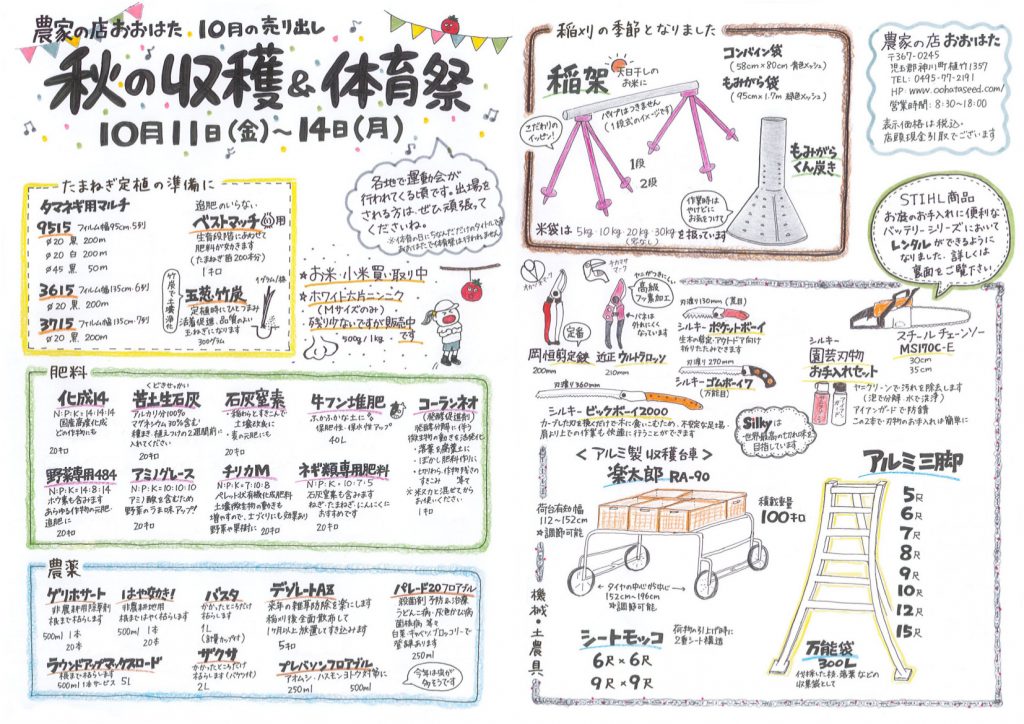 農家の店おおはた 10月の売り出し
秋の収穫&体育祭
10月11日(金)〜14日(月)
各地で運動会が
行われてくる頃です。出場を
される方は、ぜひ頑張って
くださいね。
たまねぎ定植の準備に
タマネギ用マルチ
9515 フィルム幅95cm・5列
φ20 黒 200m
φ20 白 200m
φ45 黒 50m
3615 フィルム幅135cm・6列
φ20 黒 200m
3715 フィルム幅135cm・7列
φ20 黒 200m
追肥のいらない
ベストマッチ 用
生育段階にあわせて
肥料が効きます
(たまねぎ苗200本分)
1キロ
竹炭で土壌浄化
玉葱・竹炭
定植時にひとつまみ
活着促進、品質のよい
玉ねぎになります
300グラム
お米・小米買い取り中
ホワイト六片ニンニク
(Mサイズのみ)
残り少ないですが販売中
です
500g/1kg
肥料
化成14
N:P:K=14:14:14
国産高度化成
どの作物にも
20キロ
くどせっかい
苦土生石灰
アルカリ分100%
マグネシウム30%含む
種まき・植えつけの2週間前に
入れてください
20キロ
石灰窒素
稲わらとすきこんで
土壌改良に
麦の元肥にも
20キロ
牛フン堆肥
ふかふかな土になる
保肥性・保水性アップ
40L
コーランネオ
(発酵促進剤)
発酵分解に伴う
微生物の動きを活発化
・落葉を腐葉土に
・ぼかし肥料作りに
・切りわら、作物残さの
すきこみ 等
※米ヌカと混ぜてから
お使いください
1キロ
野菜専用484
N:P:K=14:8:14
ホウ素も含みます
あらゆる作物の元肥・
追肥に
20キロ
アミノグレース
N:P:K=10:10:10
アミノ酸を含むため
野菜のうま味アップ!
20キロ
チリカM
N:P:K=7:10:8
ペレット状有機化成肥料
土壌微生物の動きも
増やすので、土づくりにも効果あり
野菜や果樹に 20キロ
ネギ類専用肥料
N:P:K=10:7:5
石灰窒素も含みます
ねぎ・たまねぎ・にんにくに
おすすめです
20キロ
農薬
ゲリホサート
非農耕用除草剤
根まで枯らします
500ml 1本
20本
はやなぎ!
非農耕地用
根まではやく枯らします
500ml 1本
20本
バスタ
かかったところだけ
枯らします
1L
(計量カップ付)
デゾレートAZ
来年の雑草防除を楽にします
稲刈り後全面散布して
1ヶ月以上放置してすき込みます
5キロ
パレード20フロアブル
殺菌剤 予防&治療
うどんこ病・灰色かび病
菌核病 等々
白菜・キャベツ・ブロッコリーで
登録あります
250ml
ラウンドアップマックスロード
根まで枯らします
500ml 1本サービス 5L
ザクサ
かかったところだけ
枯らします(バケツ付)
2L
プレバソンフロアブル
アオムシ・ハスモンヨトウ対策に
250ml 500ml
今年は虫が
多そうです
稲刈りの季節となりました
稲架
天日干しの
お米に
こだわりの
イッピン!
パイプはつきません
(1段式のイメージです)
1段
2段
コンバイン袋
(58cm×80cm・青色メッシュ)
もみがら袋
(95cm×1.7m 緑色メッシュ)
もみがら
くん炭き
作業時は
やけどに
お気をつけて
米袋は 5kg 10kg 20kg 30kg を扱っています
農家の店 おおはた
〒367-0245
児玉郡神川町植竹1357
TEL: 0495-77-2191
HP: www.oohataseed.com/
営業時間: 8:30〜18:00
表示価格は税込・
店頭現金引取でございます
STIHL 商品
お庭のお手入れに便利な
バッテリーシリーズにおいて
レンタルができるように
なりました。詳しくは
裏面をご覧下さい。
定番
岡恒剪定鋏
200mm
チカマサ
マーク
ヤニがつきにくく
高級
フッ素加工
サーパネは
外れにくく
なっています
近正 ウルトラロッソ
210mm
刃渡り130mm(荒目)
シルキー ポケットボーイ
生木の剪定・アウトドア向け
折りたたみできます
刃渡り270mm
シルキー ゴムボーイ7
(万能目)
刃渡り360mm
シルキー ビックボーイ2000
カーブした刃を挽くだけで木に食いこむため、不安定な足場・
肩より上での作業も快適に行うことができます
Silkyは
世界最高の切れ味を
目指しています
スチール チェーンソー
MS170C-E
30cm
35cm
シルキー
園芸刃物
お手入れセット
ヤニクリーンで汚れを除去します
(泡で分解、水で洗浄)
アイアンガードで防錆
この2本で刃物のお手入れは簡単に
<アルミ製 収穫台車>
楽太郎 RA-90
荷台有効幅
112〜152cm
※調節可能
積載重量
100キロ
タイヤの中心から中心
152cm〜196cm
※調節可能
シートモッコ
6尺×6尺
9尺×9尺
荷物の引上げ時に
2重シート構造
機械・土農具
アルミ三脚
5尺
6尺
7尺
8尺
9尺
10尺
12尺
15尺
万能袋
300L
伐採した枝、落葉などの
収集袋として